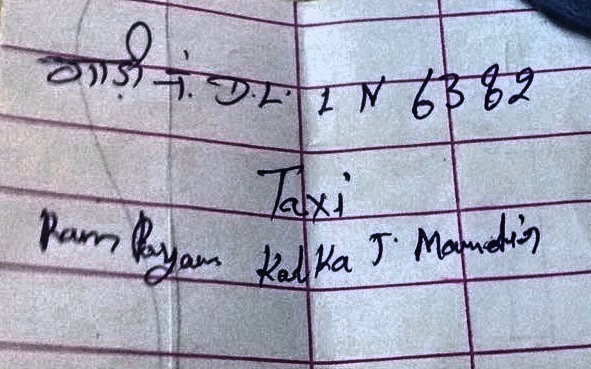 गाड़ी नं. D.L. 1 N 6382
Taxi
Ram Kalka J. Mandir